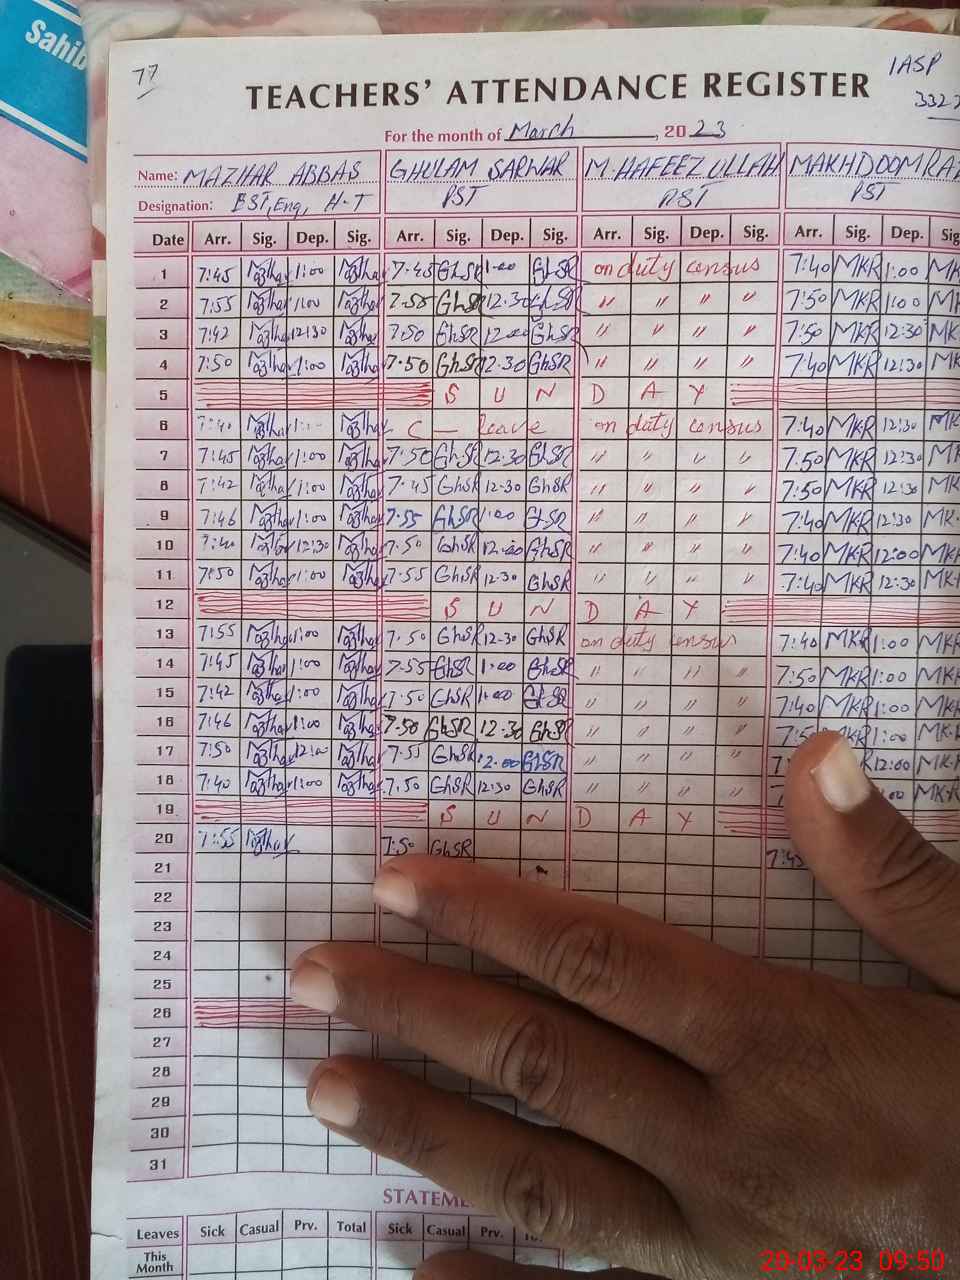 Sahib
77
IASP
TEACHERS' ATTENDANCE REGISTER
332
For the month of March, 2023
Name: MAZHAR ABBAS GHULAM SARWAR M. HAFEEZ ULLAH MAKHDOOM RA
Designation: EST, Eng, H-T PST PST PST
Date Arr. Sig. Dep. Sig. Arr. Sig. Dep. Sig. Arr. Sig. Dep. Sig. Arr. Sig. Dep. Sig
1 7:45 1:00 7.45 GhSR 1.00 GhSR on duty census 7:40 MKR 1:00 MK
2 7:55 1:00 7.55 GhSR 12.30 GhSR " " " " 7:50 MKR 1:00 MK
3 7:42 12:30 7.50 GhSR 12.00 GhSR " " " " 7:50 MKR 12:30 MK
4 7:50 1:00 7.50 GhSR 12.30 GhSR " " " " 7:40 MKR 12:30 MK
5 S U N D A Y
6 7:40 C - leave on duty census 7:40 MKR 12:30 MK
7 7:45 1:00 7.50 GhSR 12.30 GhSR " " " " 7:50 MKR 12:30 MK
8 7:42 1:00 7.45 GhSR 12.30 GhSR " " " " 7:50 MKR 12:30 MK
9 7:46 1:00 7.55 GhSR 1.00 GhSR " " " " 7:40 MKR 12:30 MK
10 7:40 12:30 7.50 GhSR 12.00 GhSR " " " " 7:40 MKR 12:00 MK
11 7:50 1:00 7.55 GhSR 12.30 GhSR " " " " 7:40 MKR 12:30 MK
12 S U N D A Y
13 7:55 1:00 7.50 GhSR 12-30 GhSR on duty census 7:40 MKR 1:00 MKR
14 7:45 1:00 7.55 GhSR 1.00 GhSR " " " " 7:50 MKR 1:00 MKR
15 7:42 1:00 7.50 GhSR 1.00 GhSR " " " " 7:40 MKR 1:00 MKR
16 7:46 1:00 7.50 GhSR 12.30 GhSR " " " " MKR 1:00 MKR
17 7:50 12:00 7.55 GhSR 12.00 GhSR " " " " 12:00 MKR
18 7:40 1:00 7.50 GhSR 12.30 GhSR " " " " MKR
19 S U N D A Y
20 7:55 7:50 GhSR 7:45
21
22
23
24
25
26
27
28
29
30
31
STATEME
Leaves Sick Casual Prv. Total Sick Casual Prv.
This Month
20-03-23 09:50